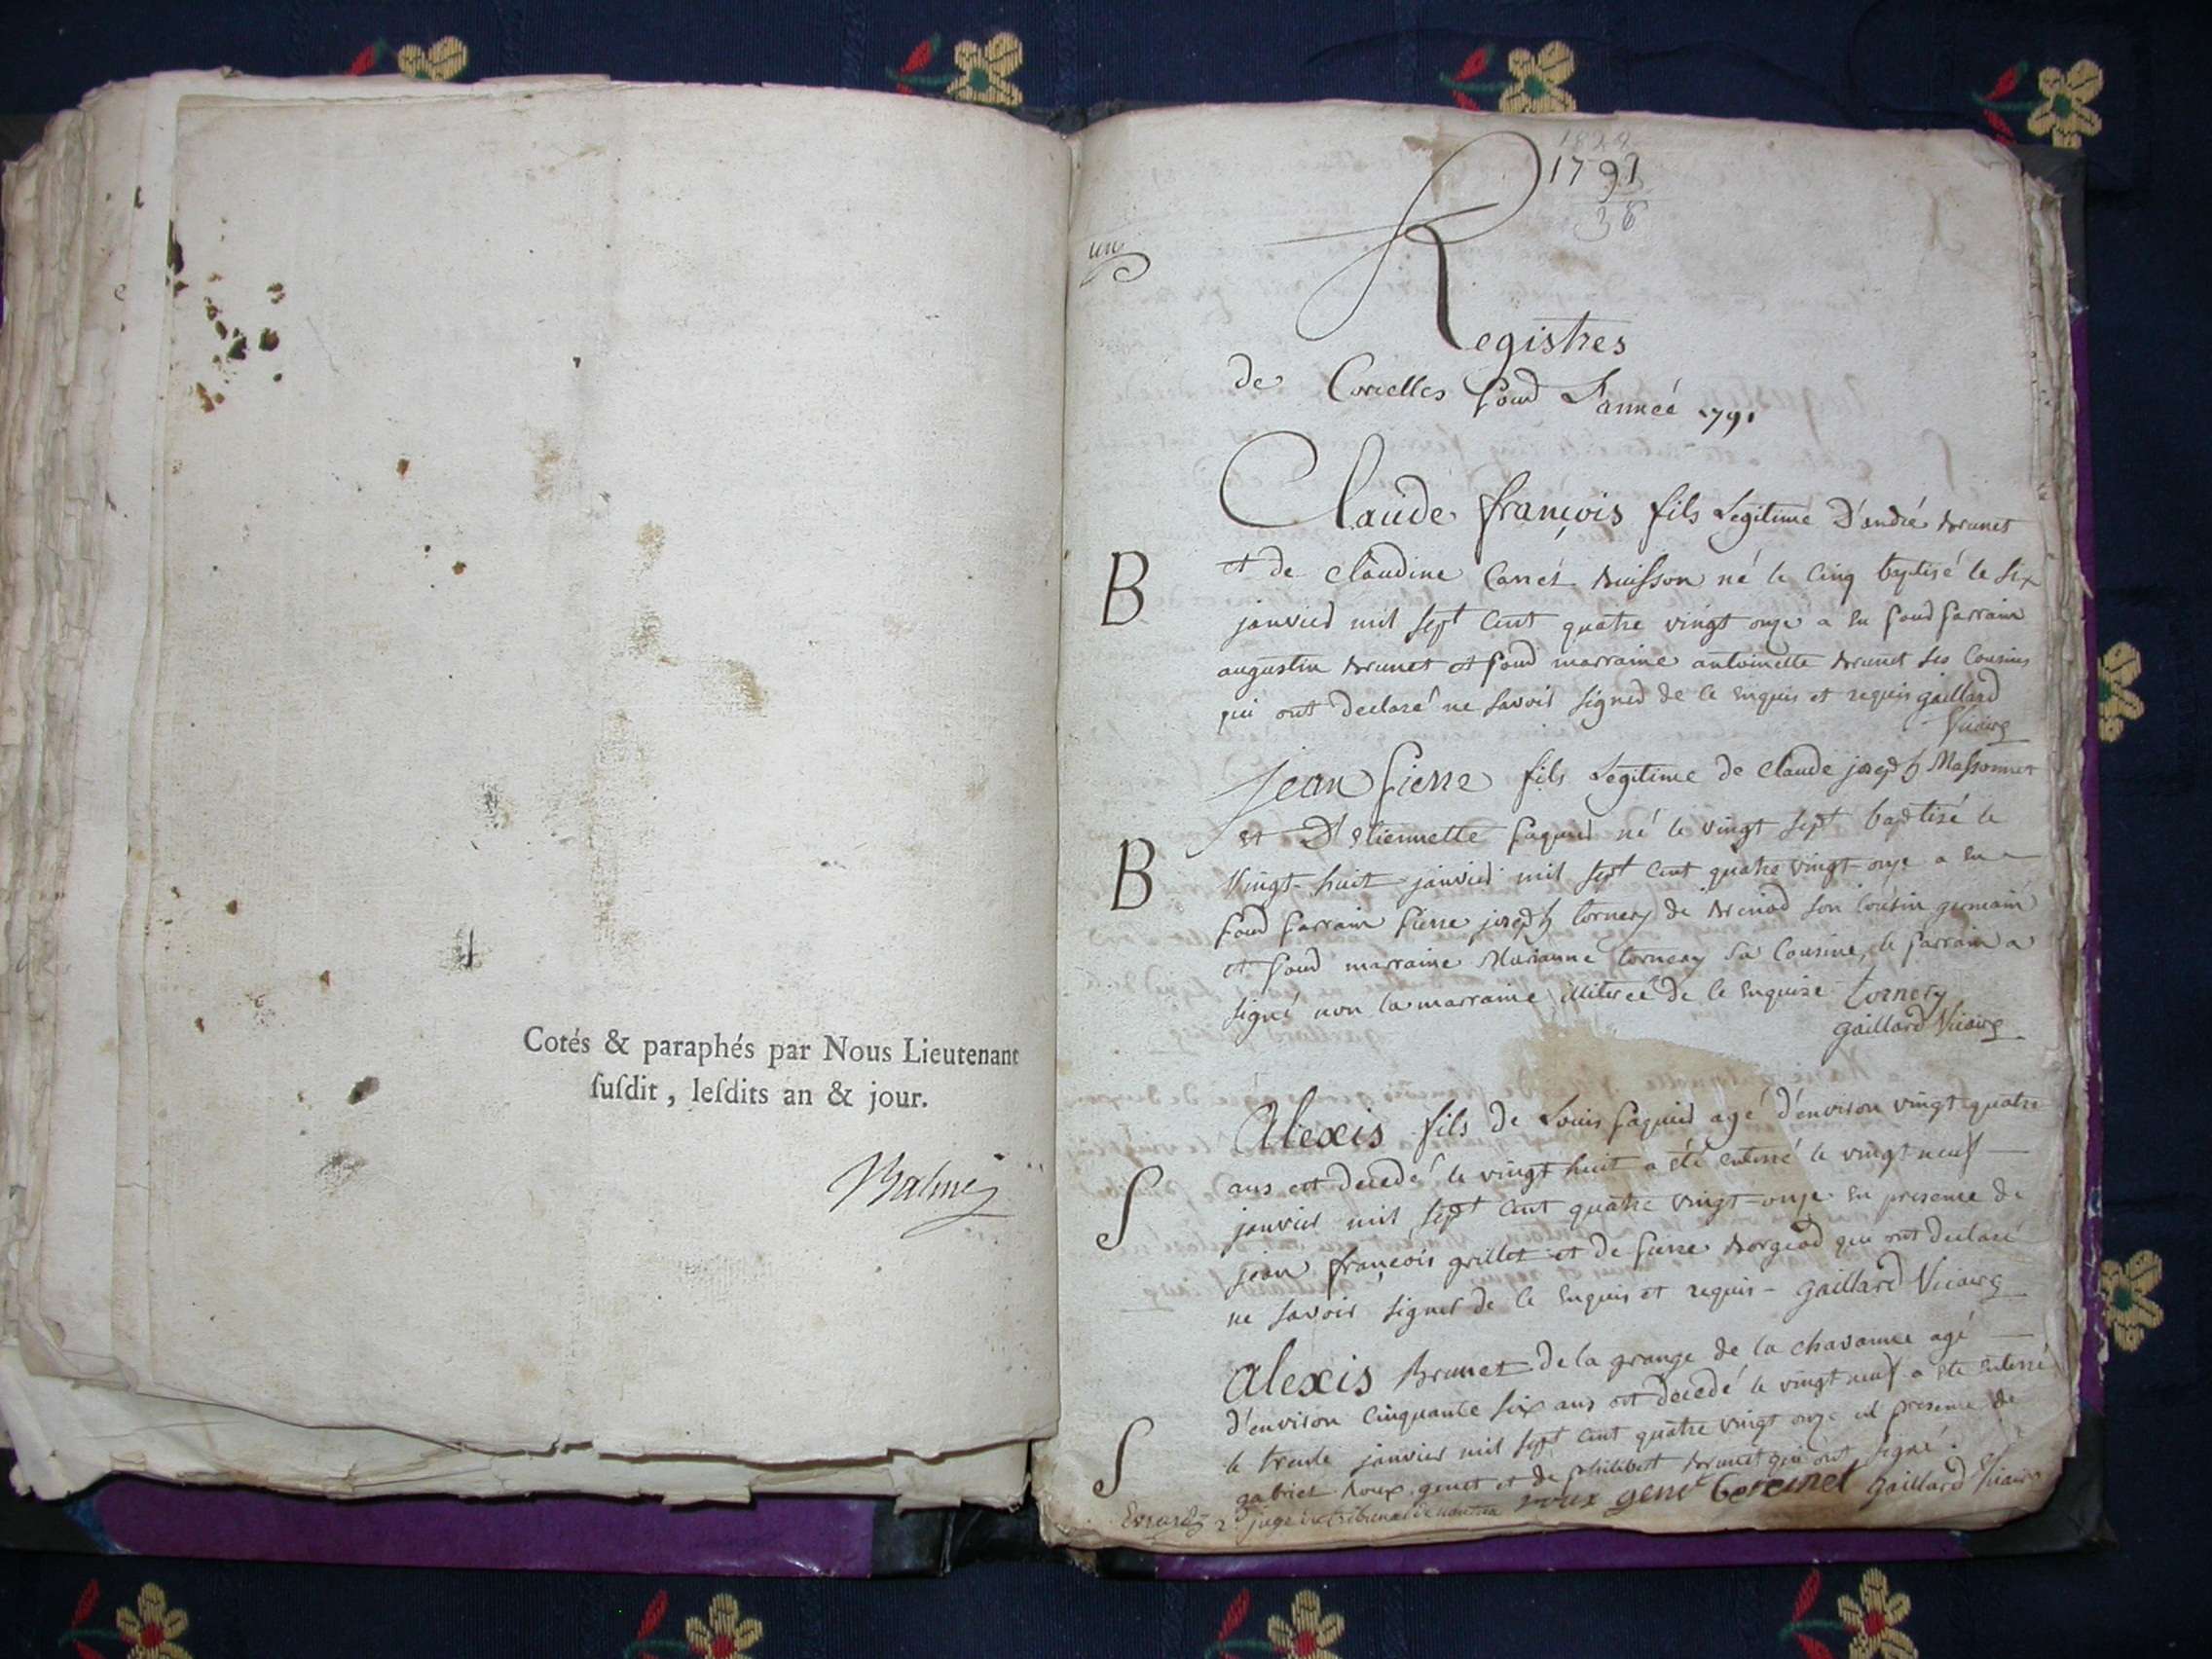 Cotés & paraphés par Nous Lieutenant
ſuſdit, leſdits an & jour.
1824
1791
38
un
Registres
de Corcelles pour L'année 1791
Claude françois fils Legitime D'andré brunet
B
et de claudine Carret buisson né le cinq baptisé le six
janvier mil sept cent quatre vingt onze a eu pour parrain
augustin brunet et pour marraine antoinette brunet ses cousins
qui ont declaré ne savoir signer de ce enquis et requis gaillard
Vicaire
jean pierre fils Legitime de claude joseph Massonnet
et D'etiennette paquid né le vingt sept baptisé le
B
Vingt-huit janvier mil sept cent quatre vingt-onze a eu
pour parrain pierre joseph tornery de brenod son cousin germain
et pour marraine Marianne tornery sa cousine, le parrain a
signé non la marraine illiterée de ce enquise tornery
gaillard Vicaire
Alexis fils de Louis paquid agé d'environ vingt quatre
ans est decedé le vingt huit a été enterré le vingt neuf
S
janvier mil sept cent quatre vingt-onze en presence de
jean françois grillet et de pierre borgeod qui ont declaré
ne savoir signer de ce enquis et requis - gaillard Vicaire
Alexis Brunet de la grange de la chavanne agé
d'environ cinquante six ans est decedé le vingt neuf a ete enterré
S
le trente janvier mil sept cent quatre vingt onze en presence de
gabriel roux genet et de philibert brunet qui ont signé.
2d juge du tribunal de nantua roux genet brunet gaillard Vicaire